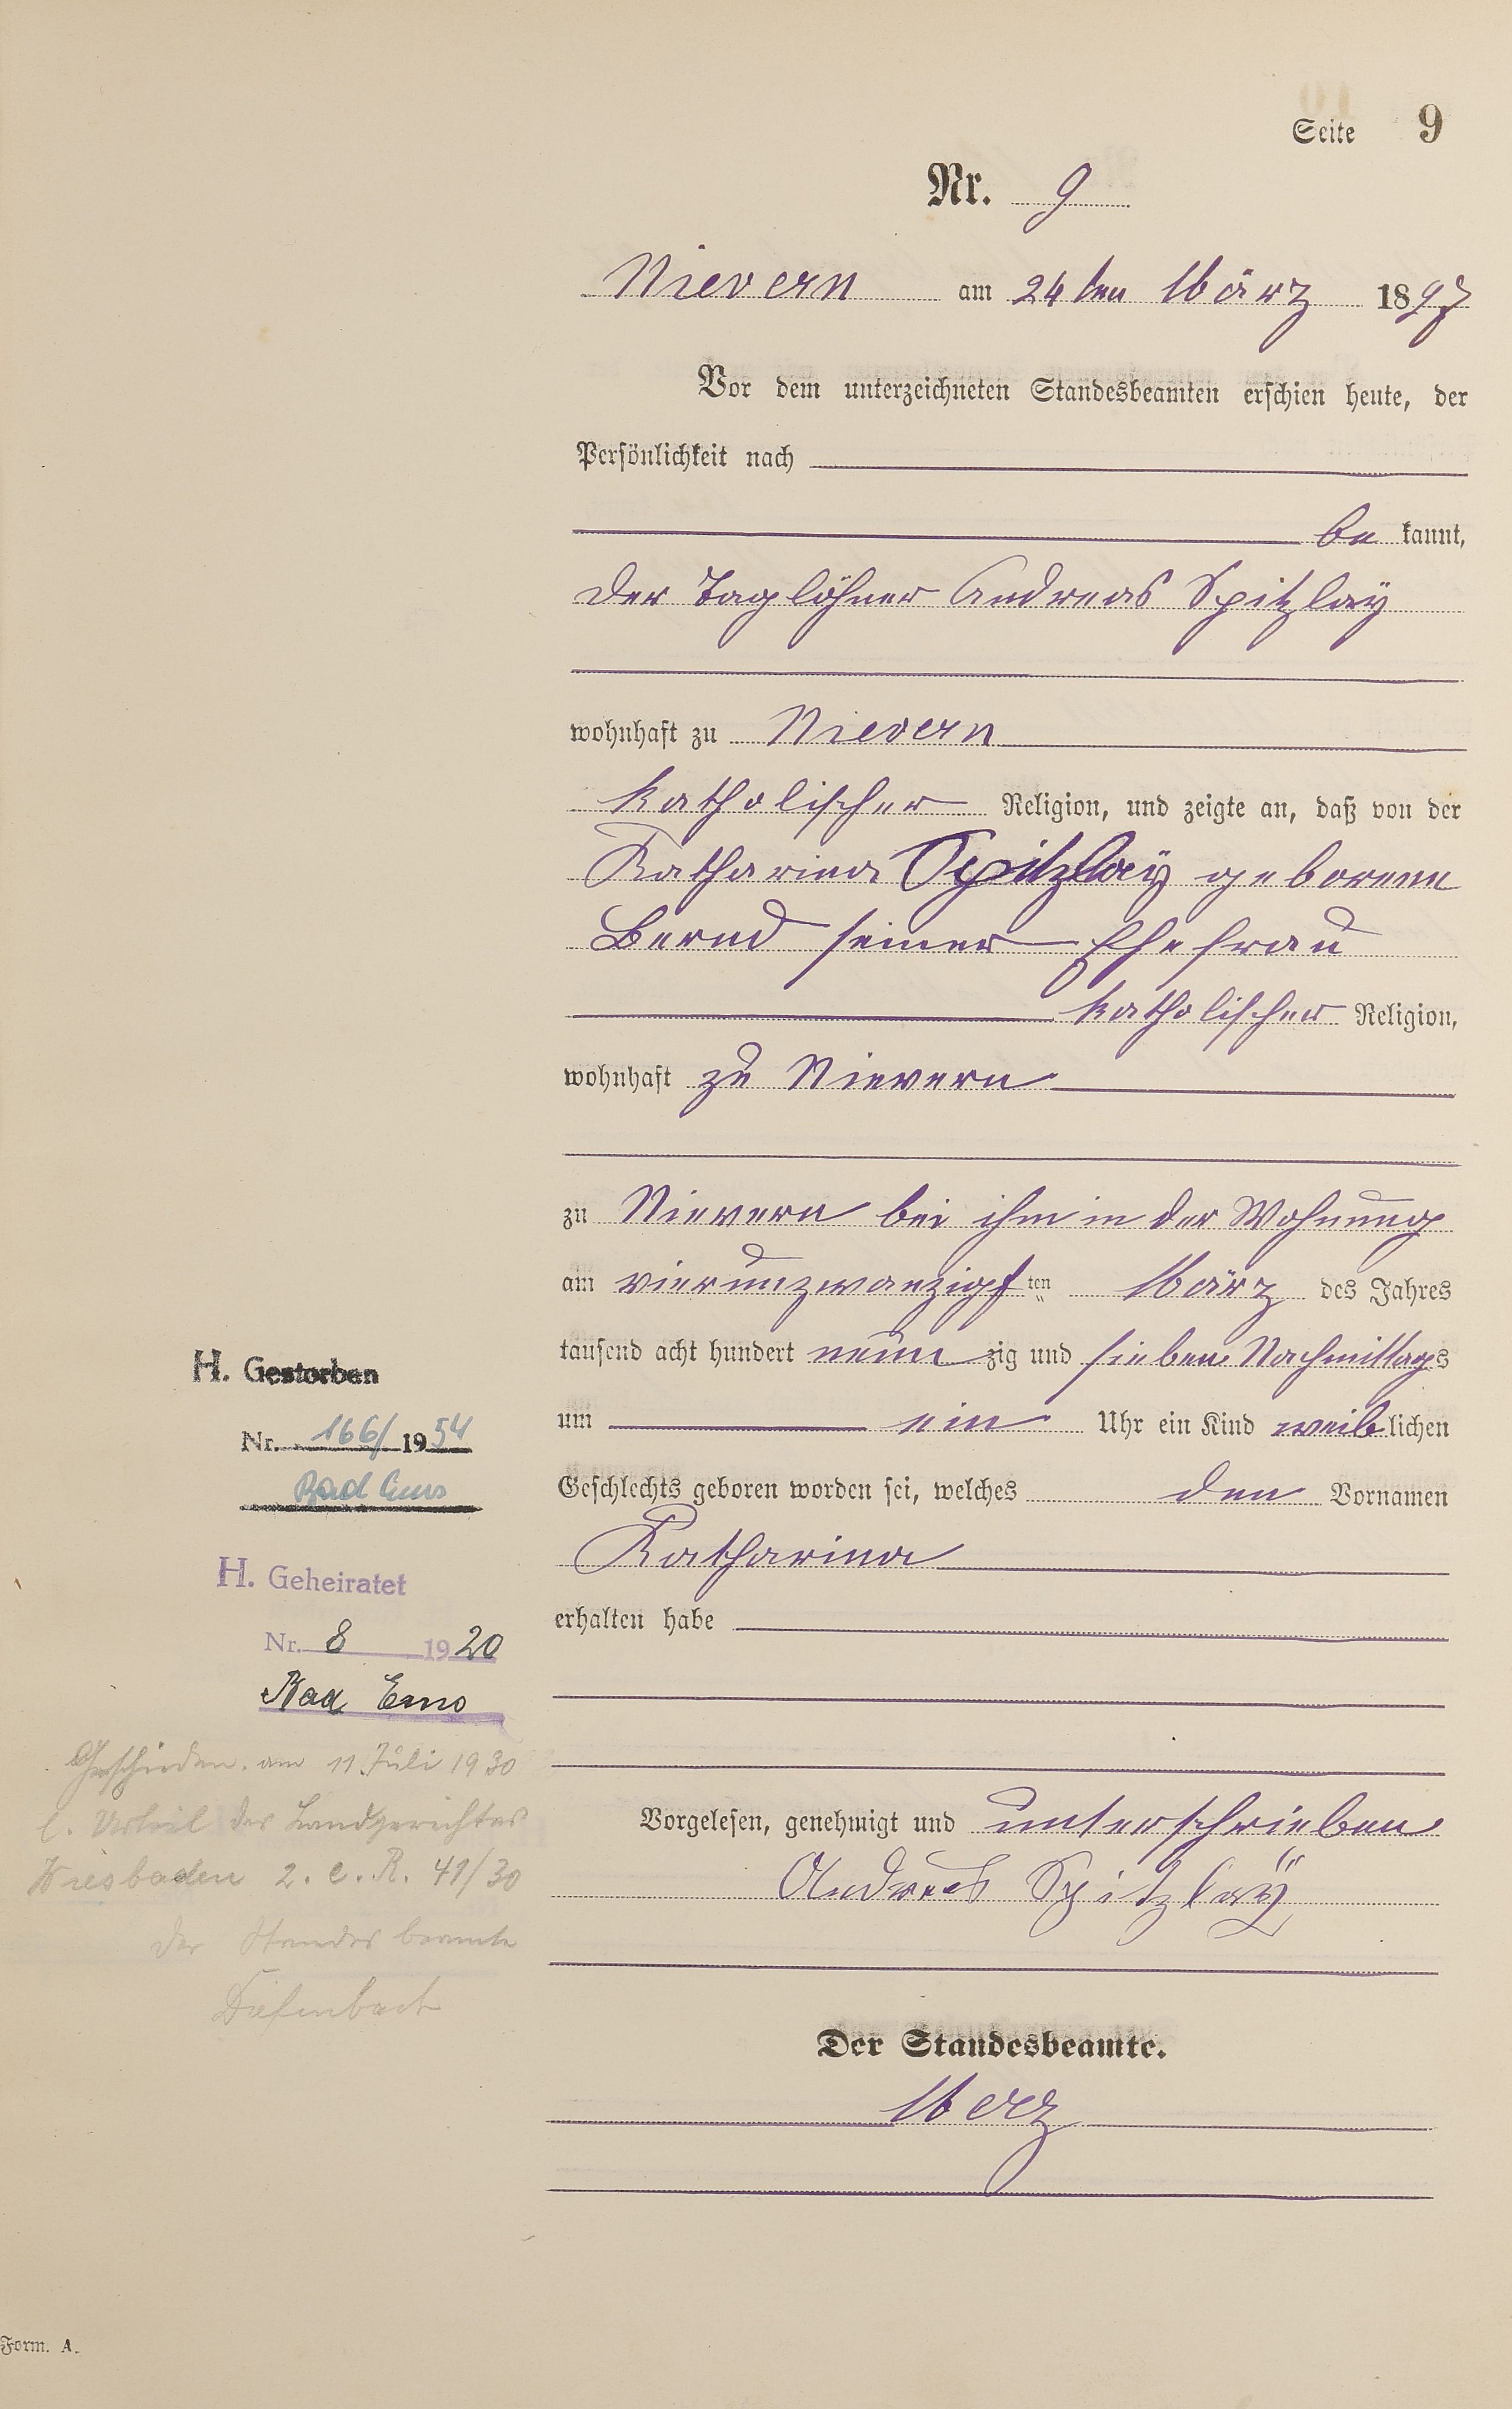 Seite 9
Nr. 9
Nievern am 24ten März 1897
Vor dem unterzeichneten Standesbeamten erschien heute, der
Persönlichkeit nach
be kannt,
der Taglöhner Andreas Spitzlaÿ
wohnhaft zu Nievern
katholischer Religion, und zeigte an, daß von der
Katharina Spitzlaÿ geborenen
Bernd seiner Ehefrau
katholischer Religion,
wohnhaft zu Nievern
zu Nievern bei ihm in der Wohnung
am vierunzwanzigsten März des Jahres
tausend acht hundert neun zig und sieben Nachmittags
um ein Uhr ein Kind weiblichen
Geschlechts geboren worden sei, welches den Vornamen
Katharina
erhalten habe
Vorgelesen, genehmigt und unterschrieben
Andreas Spitzlaÿ
Der Standesbeamte.
Merz
H. Gestorben
Nr. 166/1954
Bad Ems
H. Geheiratet
Nr. 8 1920
Bad Ems
Geschieden am 11. Juli 1930
l. Urteil des Landgerichtes
Wiesbaden 2. C. R. 41/30
Der Standesbeamte
Diefenbach
Form. A.